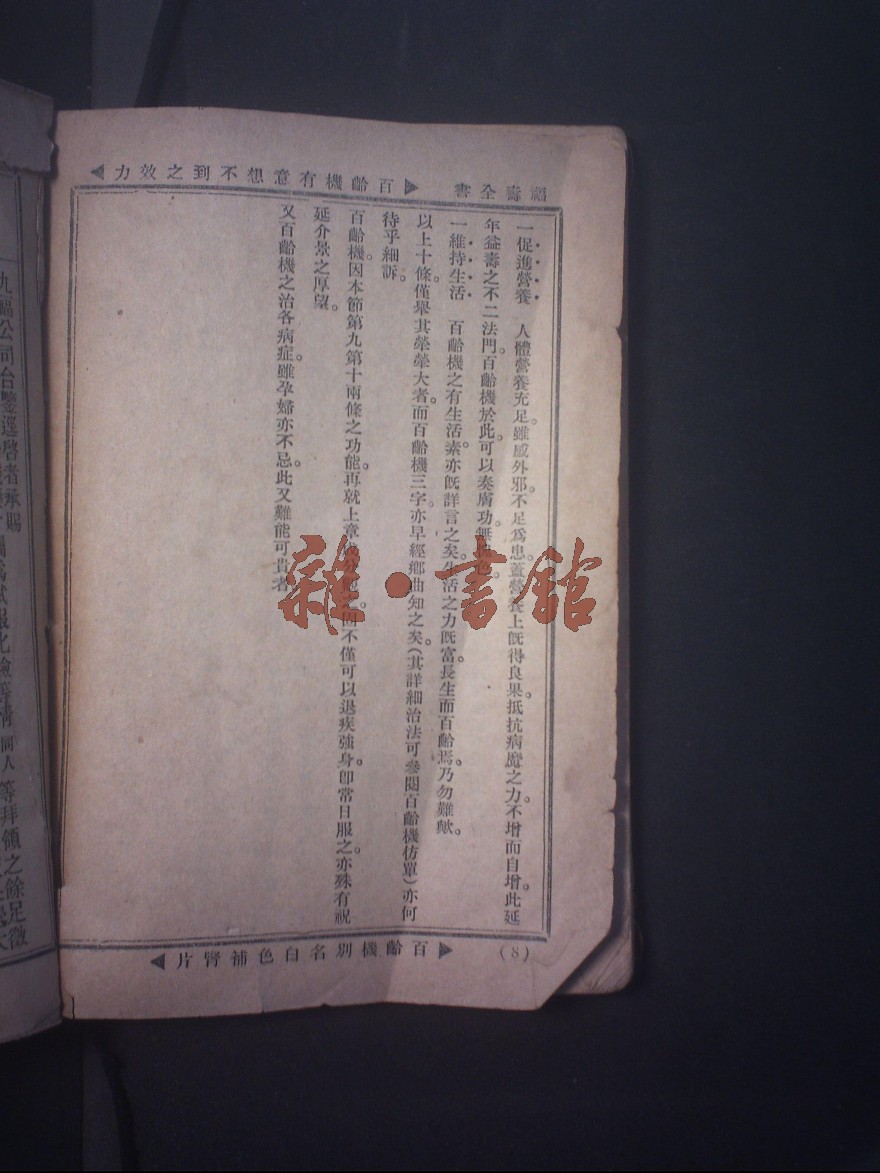 福壽全書 ◀百齡機有意想不到之效力▶
一促進營養 人體營養充足。雖感外邪。不足爲患。蓋營養上旣得良果。抵抗病魔之力。不增而自增。此延
年益壽之不二法門。百齡機於此。可以奏膚功。無愧色。
一維持生活 百齡機之有生活素。亦旣詳言之矣。生活之力旣富。長生而百齡焉。乃勿難歟。
以上十條。僅舉其犖犖大者。而百齡機三字。亦早經鄉曲知之矣。(其詳細治法可參閱百齡機仿單)亦何
待乎細訴。
百齡機。因本節第九第十兩條之功能。再就上章 之。固不僅可以退疾強身。卽常日服之。亦殊有祝
延介景之厚望。
又百齡機之治各病症。雖孕婦亦不忌。此又難能可貴者
(8)
◀百齡機別名白色補腎片▶
九福公司台鑒逕啓者承賜
等拜領之餘足徵
雜·書館